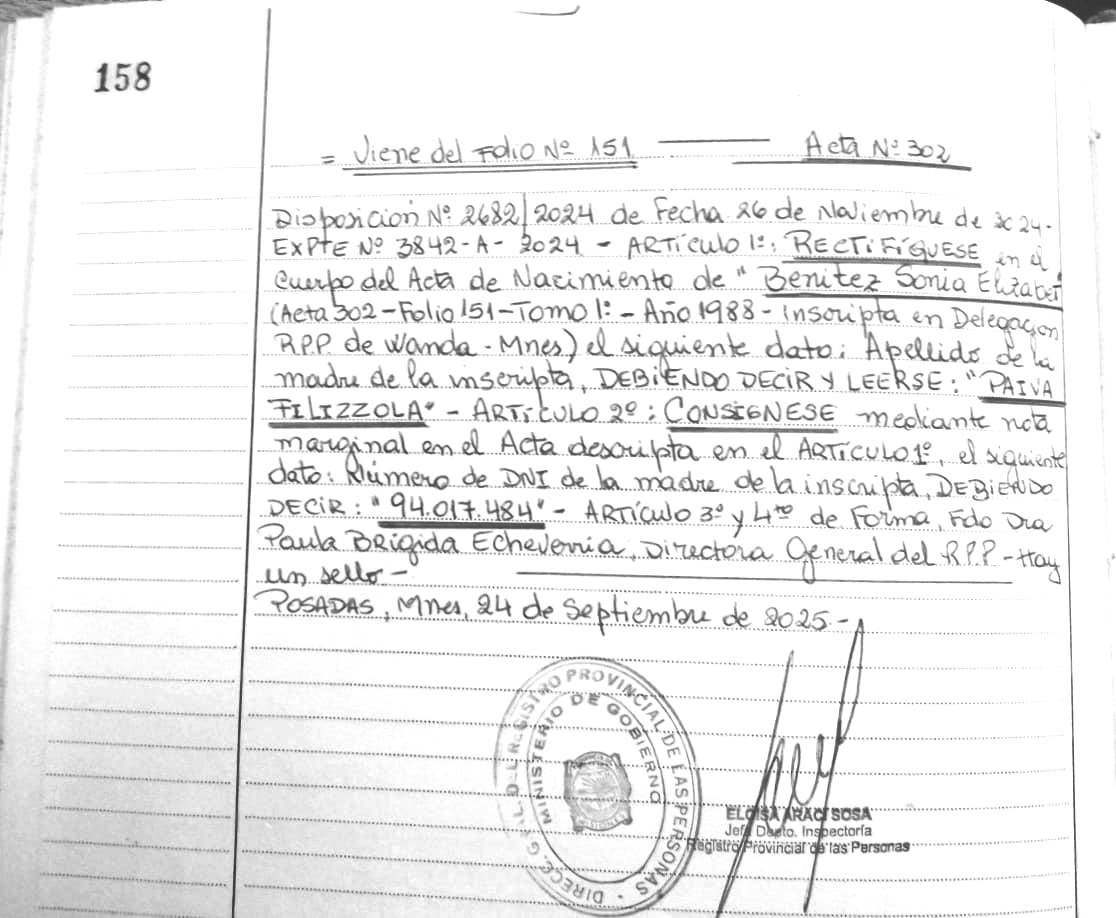 158
= Viene del Folio Nº 151 ——— Acta Nº 302
Disposicion Nº 2682/2024 de Fecha 26 de Noviembre de 2024.
EXPTE Nº 3842-A-2024 - ARTÍCULO 1º: RECTIFÍQUESE en el
cuerpo del Acta de Nacimiento de "Benitez Sonia Elizabet
(Acta 302-Folio 151-Tomo 1º - Año 1988 - Inscripta en Delegacion
R.P.P. de Wanda - Mnes) el siguiente dato: Apellido de la
madre de la inscripta, DEBIENDO DECIR Y LEERSE: "PAIVA
FILIZZOLA" - ARTÍCULO 2º: CONSIGNESE mediante nota
marginal en el Acta descripta en el ARTÍCULO 1º, el siguiente
dato: Número de DNI de la madre de la inscripta, DEBIENDO
DECIR: "94.017.484" - ARTÍCULO 3º y 4to de Forma, Fdo Dra
Paula Brigida Echeverria, Directora General del R.P.P - Hay
un sello -
POSADAS, Mnes, 24 de Septiembre de 2025 -
DIRECC. GRAL. DEL REGISTRO PROVINCIAL DE LAS PERSONAS
MINISTERIO DE GOBIERNO
ELOISA ARACI SOSA
Jefa Dpto. Inspectoría
Registro Provincial de las Personas